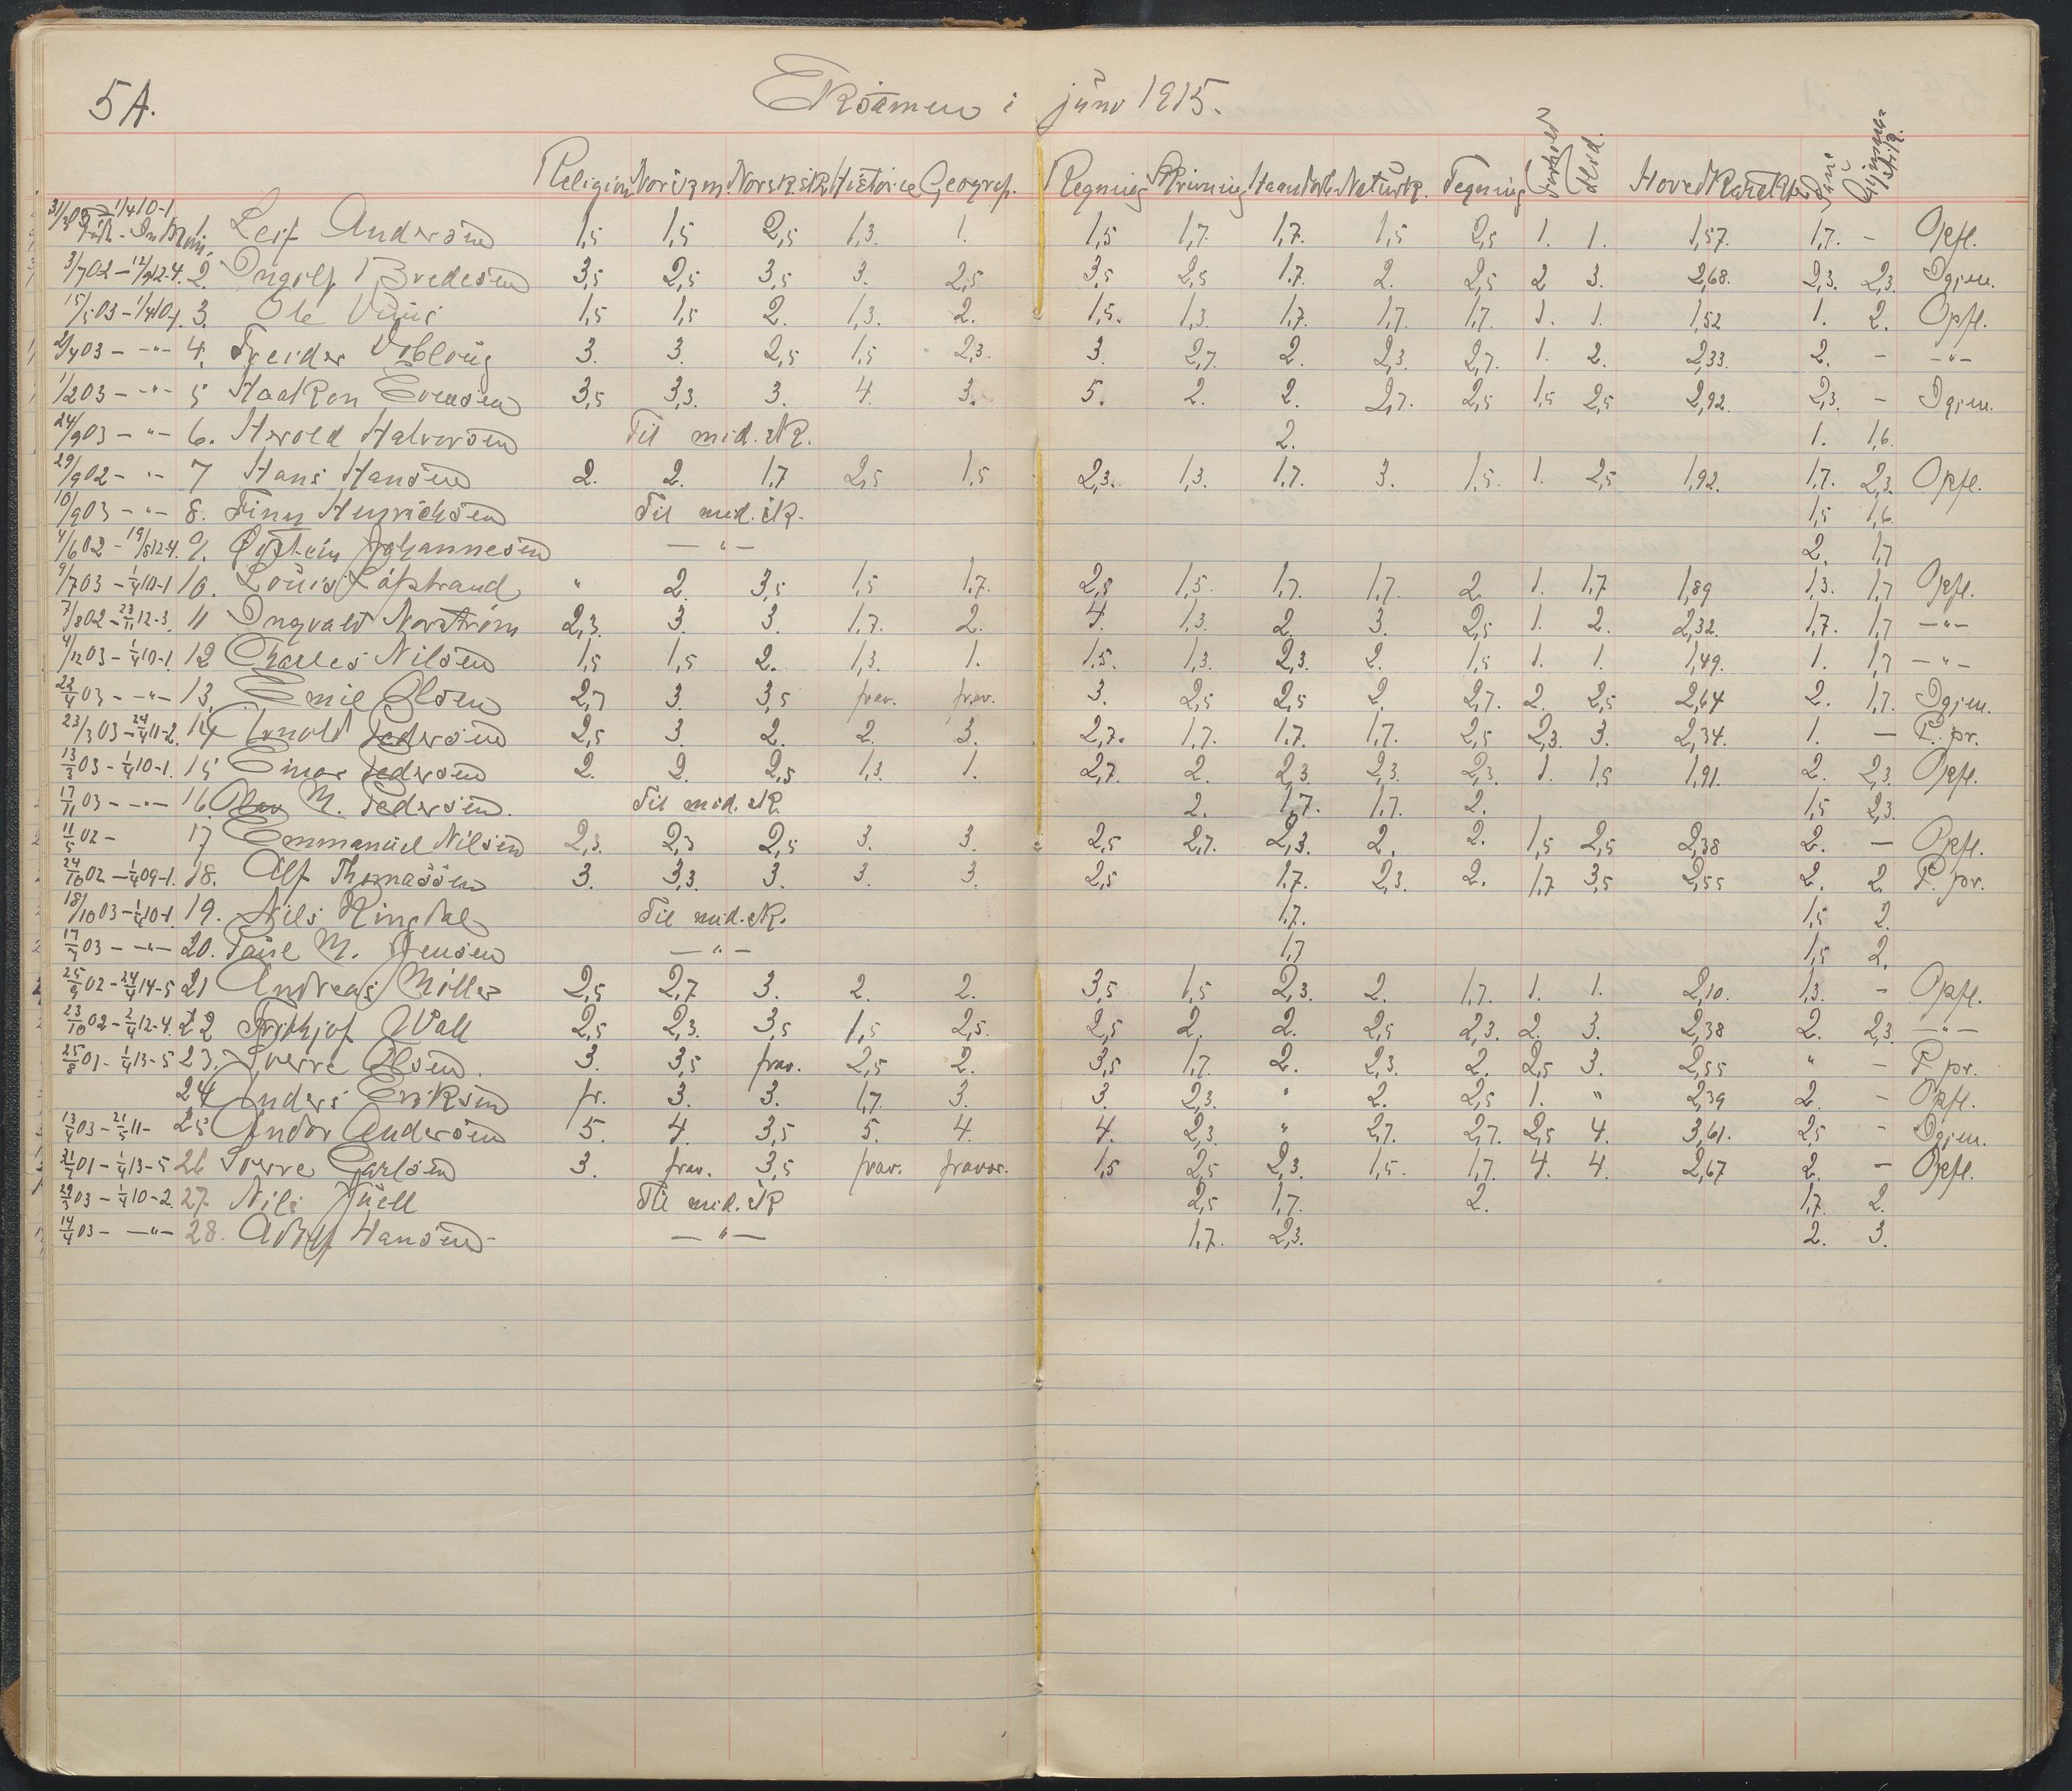 5A. Eksamen i juni 1915.
Religion Norsk m. Norsk sk. Historie Geograf. Regning Skrivning Haandarb. Naturk. Tegning Forhold Flid. Hovedkarakter Sang Gymnastik.
1/4 10-1
1. Leif Andersen 1,5 1,5 2,5 1,3. 1. 1,5 1,7. 1,7. 1,5 2,5 1. 1. 1,57. 1,7. - Opfl.
3/7 02 - 12-4. 2. Ingolf Bredesen 3,5 2,5 3,5 3. 2,5 3,5 2,5 1.7 2. 2,5 2 3. 2,68. 2,3. 2,3. Igjen.
15/5 03 - 1/4 10-1. 3. Ole 1,5 1,5 2. 1,3. 2. 1,5. 1,3. 1,7. 1,7. 1,7. 1. 1. 1,52 1. 2. Opfl.
2/4 03 - -"- 4. 3. 3. 2,5 1,5 2,3. 3. 2,7. 2. 2,3. 2,7. 1. 2. 2,33. 2. - -"-
1/2 03 - -"- 5 Haakon Evensen 3,5 3,3. 3. 4. 3. 5. 2. 2. 2,7. 2,5 1,5 2,5 2,92. 2,3. - Igjen.
24/9 03 - -"- 6. Harold Halvorsen Til mid. sk. 2. 1. 1,6.
29/9 02 - -"- 7 Hans Hansen 2. 2. 1,7 2,5 1,5 2,3. 1,3. 1,7. 3. 1,5. 1. 2,5 1,92. 1,7. 2,3. Opfl.
10/9 03 - -"- 8. Finn Henrichsen Til mid. sk. 1,5 1,6.
4/6 02 - 19/8 12-4. 9. Øistein Johannesen -"- 2. 1,7
9/7 03 - 1/4 10-1 10. Louis Løpstrand " 2. 3,5 1,5 1,7. 2,5 1,5. 1,7. 1,7. 2. 1. 1,7 1,89 1,3. 1,7 Opfl.
7/8 02 - 23/11 12-3. 11 Ingvald Norstrøm 2,3. 3. 3. 1,7. 2. 4. 1,3. 2. 3. 2,5 1. 2. 2,32. 1,7. 1,7 -"-
4/12 03 - 1/4 10-1. 12 Charles Nilsen 1,5 1,5 2. 1,3. 1. 1,5. 1,3. 2,3. 2. 1,5 1. 1. 1,49. 1. 1,7 -"-
22/4 03 - -"- 13. Emil Olsen 2,7 3. 3,5 frav. frav. 3. 2,5 2,5 2. 2,7. 2. 2,5 2,64 2. 1,7. Igjen.
23/3 03 - 24/4 11-2. 14 Arnold Pedersen 2,5 3. 2. 2. 3. 2,7. 1,7. 1,7. 1,7. 2,5 2,3. 3. 2,34. 1. - P. pr.
13/3 03 - 1/4 10-1. 15 Einar Pedersen 2. 2. 2,5 1,3. 1. 2,7. 2. 2,3. 2,3. 2,3. 1. 1,5 1,91. 2. 2,3. Opfl.
17/11 03 - -"- 16. Olav M. Pedersen. Til mid. sk. 2. 1,7. 1,7. 2. 1,5 2,3.
11/5 02 - 17 Emmanuel Nilsen 2,3. 2,3 2,5 3. 3. 2,5 2,7. 2,3. 2. 2. 1,5 2,5 2,38 2. - Opfl.
24/10 02 - 1/4 09-1. 18. Alf Thomassen 3. 3,3. 3. 3. 3. 2,5 1,7. 2,3. 2. 1,7 3,5 2,55 2. 2. P. pr.
18/10 03 - 1/4 10-1 19. Nils Ringdal Til mid. sk. 1,7. 1,5 2.
17/7 03 - -"- 20. Paul M. Jensen -"- 1,7 1,5 2.
25/9 02 - 24/4 14-5 21 Andreas Møller 2,5 2,7 3. 2. 2. 3,5 1,5 2,3. 2. 1,7. 1. 1. 2,10. 1,3. - Opfl.
23/10 02 - 2/4 12-4. 22 Frithjof Wall 2,5 2,3. 3,5 1,5 2,5. 2,5 2. 2. 2,5 2,3. 2. 3. 2,38 2. 2,3 -"-
25/8 01 - 1/4 13-5 23. Sverre Olsen. 3. 3,5 frav. 2,5 2. 3,5 1,7. 2. 2,3. 2. 2,5 3. 2,55 " - P. pr.
24 Anders Eriksen fr. 3. 3. 1,7. 3. 3. 2,3. " 2. 2,5 1. " 2,39 2. - Opfl.
13/4 03 - 21/5 11- 25 Andor Andersen 5. 4. 3,5 5. 4. 4. 2,3. " 2,7. 2,7. 2,5 4. 3,61. 2,5 - Igjen.
21/7 01 - 1/4 13-5 26 Sverre Carlsen 3. frav. 3,5 frav. fravær. 1,5 2,5 2,3. 1,5. 1,7. 4. 4. 2,67 2. - Opfl.
29/3 03 - 1/4 10-2. 27. Nils Juell Til mid. sk 2,5 1,7. 2. 1,7. 2.
14/4 03 - -"- 28. Adolf Hansen - -"- 1,7. 2,3. 2. 3.